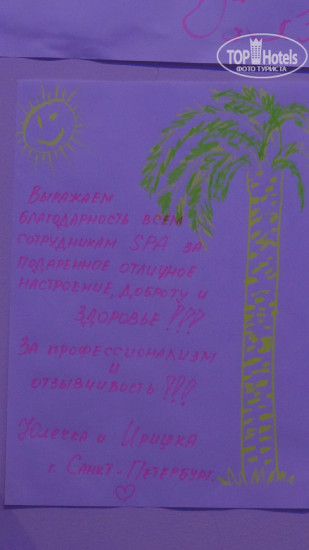 TOP Hotels
ФОТО ТУРИСТА
Выражаем
благодарность всем
сотрудникам SPA за
подаренное отличное
настроение, доброту и
здоровье!!!
За профессионализм
и
отзывчивость!!!
Юлечка и Иришка
г. Санкт-Петербург